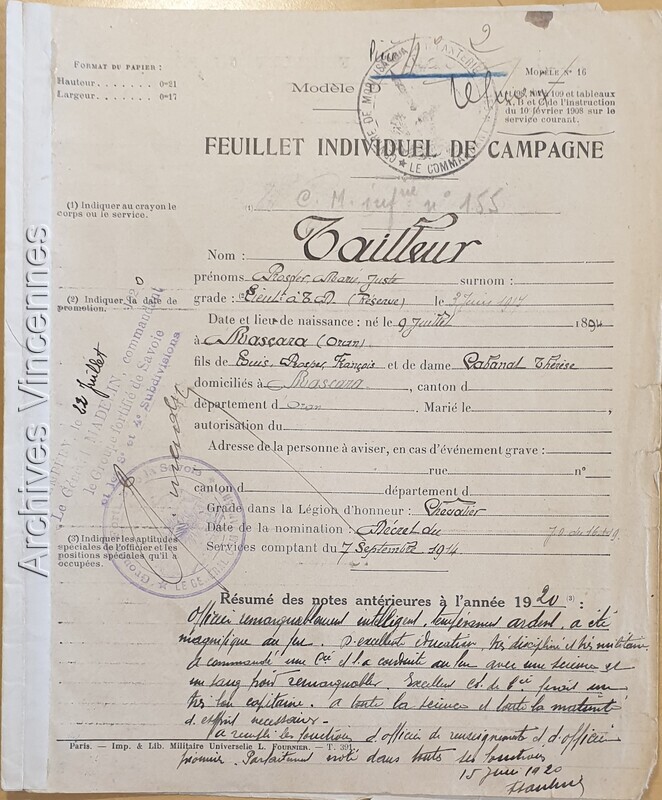 2
FORMAT DU PAPIER :
Hauteur . . . . . . . 0m21
Largeur . . . . . . . 0m17
Modèle
MODÈLE N° 16
109 et tableaux
A, B et C de l'instruction
du 10 février 1908 sur le
service courant.
LE COMMANDANT
FEUILLET INDIVIDUEL DE CAMPAGNE
(1) Indiquer au crayon le
corps ou le service.
(1) C. M. infrie n° 155
Nom : Tailleur
prénoms Prosper Marie Juste surnom :
(2) Indiquer la date de
promotion.
grade : Lieut à T.D. (Réserve) le 3 Juin 1917
Date et lieu de naissance : né le 9 Juillet 1894
à Mascara (Oran)
fils de Louis, Prosper, François et de dame Cabanal Thérèse
domiciliés à Mascara, canton d
département d'Oran Marié le
autorisation du
Adresse de la personne à aviser, en cas d'événement grave :
rue n°
canton d département d
Grade dans la Légion d'honneur : Chevalier
Date de la nomination : Décret du J.O. du
(3) Indiquer les aptitudes
spéciales de l'officier et les
positions spéciales qu'il a
occupées.
Services comptant du 7 Septembre 1914
le 22 Juillet 1920
Le Général MADELIN, commandant
le Groupe fortifié de Savoie
et les 3e et 4e Subdivisions
Archives Vincennes
Résumé des notes antérieures à l'année 1920 (3) :
Officier remarquablement intelligent, tempérament ardent, a été
magnifique au feu. D'excellente éducation, très discipliné et très militaire.
A commandé une Cie et l'a conduite au feu avec une science et
un sang froid remarquables. Excellent Ct de Cie ferait un
très bon capitaine. A toute la science et toute la maturité
d'esprit nécessaire.
A rempli les fonctions d'officier de renseignements et d'officier
Paris. — Imp. & Lib. Militaire Universelle L. FOURNIER. — T. 391
pionnier. Parfaitement noté dans toutes ses fonctions
15 Juin 1920